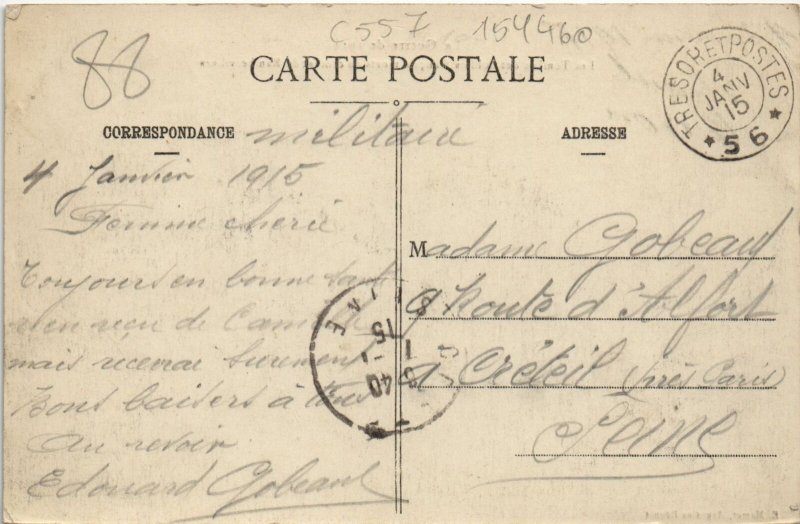 C557 154460
88
CARTE POSTALE
TRESOR ET POSTES
4
JANV
15
* 56 *
CORRESPONDANCE militaire
ADRESSE
4 Janvier 1915
Femme cherie
Toujours en bonne santé
rien reçu de
mais recevrai surement
Bons baisers à tous
Au revoir
Edouard Gobeaut
Madame Gobeaut
9 Route d'Alfort
à Créteil (près Paris)
Seine